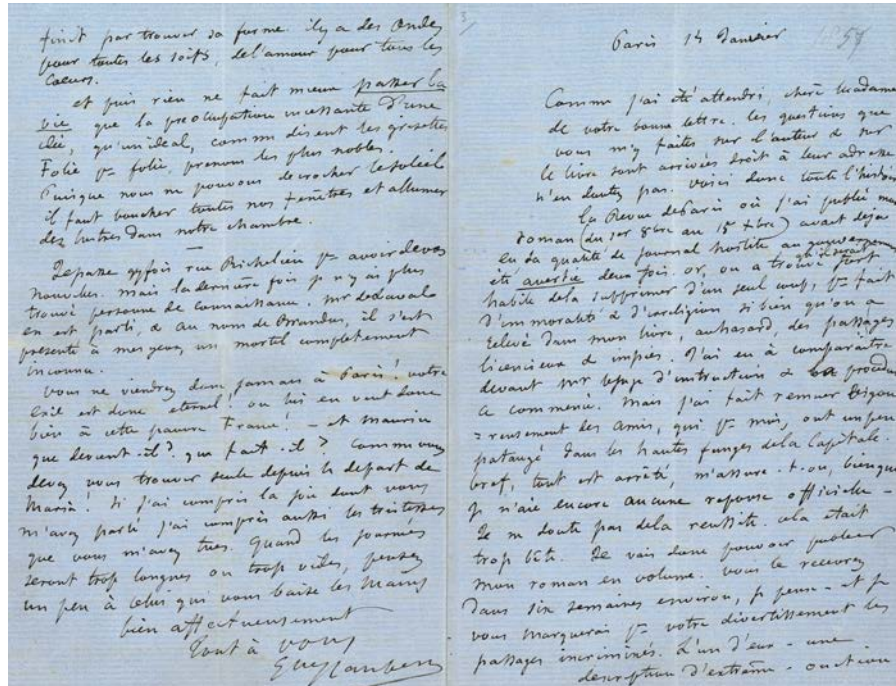 finit par trouver sa forme. il y a des Ondes
pour toutes les soifs, de l'amour pour tous les
cœurs.
et puis rien ne fait mieux passer la
vie que la préoccupation incessante d'une
idée, qu'un idéal, comme disent les grisettes
Folie pr folie, prenons les plus nobles.
Puisque nous ne pouvons décrocher le soleil
il faut boucher toutes nos fenêtres et allumer
des lustres dans notre chambre.
Je passe qqfois rue Richelieu pr avoir de vos
nouvelles. mais la dernière fois je n'y ai plus
trouvé personne de connaissance. mr de Laval
en est parti, & au nom de Brandus, il s'est
présenté à mes yeux, un mortel complètement
inconnu.
Vous ne viendrez donc jamais à Paris! votre
exil est donc éternel! on lui en veut donc
bien à cette pauvre France! - et Maurice
que devient-il? que fait-il? Comme vous
devez vous trouver seule depuis le départ de
Maria! Si j'ai compris la joie dont vous
m'avez parlé j'ai compris aussi les tristesses
que vous m'avez tues. Quand les journées
seront trop longues ou trop vides, pensez
un peu à celui qui vous baise les mains
bien affectueusement
Tout à vous
G Flaubert
3
Paris 14 Janvier
1857
Comme j'ai été attendri, chère Madame
de votre bonne lettre. les questions que
vous m'y faites sur l'auteur & sur
le livre sont arrivées droit à leur adresse
n'en doutez pas. voici donc toute l'histoire
la Revue de Paris où j'ai publié mon
roman (du 1er 8bre au 15 Xbre) avait déjà
en sa qualité de journal hostile au gouvernemt
été avertie deux fois. or, on a trouvé qu'il serait fort
habile de la supprimer d'un seul coup, pr fait
d'immoralité & d'irréligion. si bien qu'on a
relevé dans mon livre, au hasard, des passages
licencieux & impies. J'ai eu à comparaître
devant mr le juge d'instruction & la procédure
a commencé. Mais j'ai fait remuer vigou
=reusement les amis, qui pr moi, ont un peu
pataugé dans les hautes fanges de la Capitale.
bref, tout est arrêté, m'assure-t-on, bien que
je n'aie encore aucune réponse officielle -
Je ne doute pas de la réussite. cela était
trop bête. Je vais donc pouvoir publier
mon roman en volume. vous le recevrez
dans six semaines environ, je pense - et je
vous marquerai pr votre divertissement les
passages incriminés. L'un d'eux - une
description d'extrême-onction